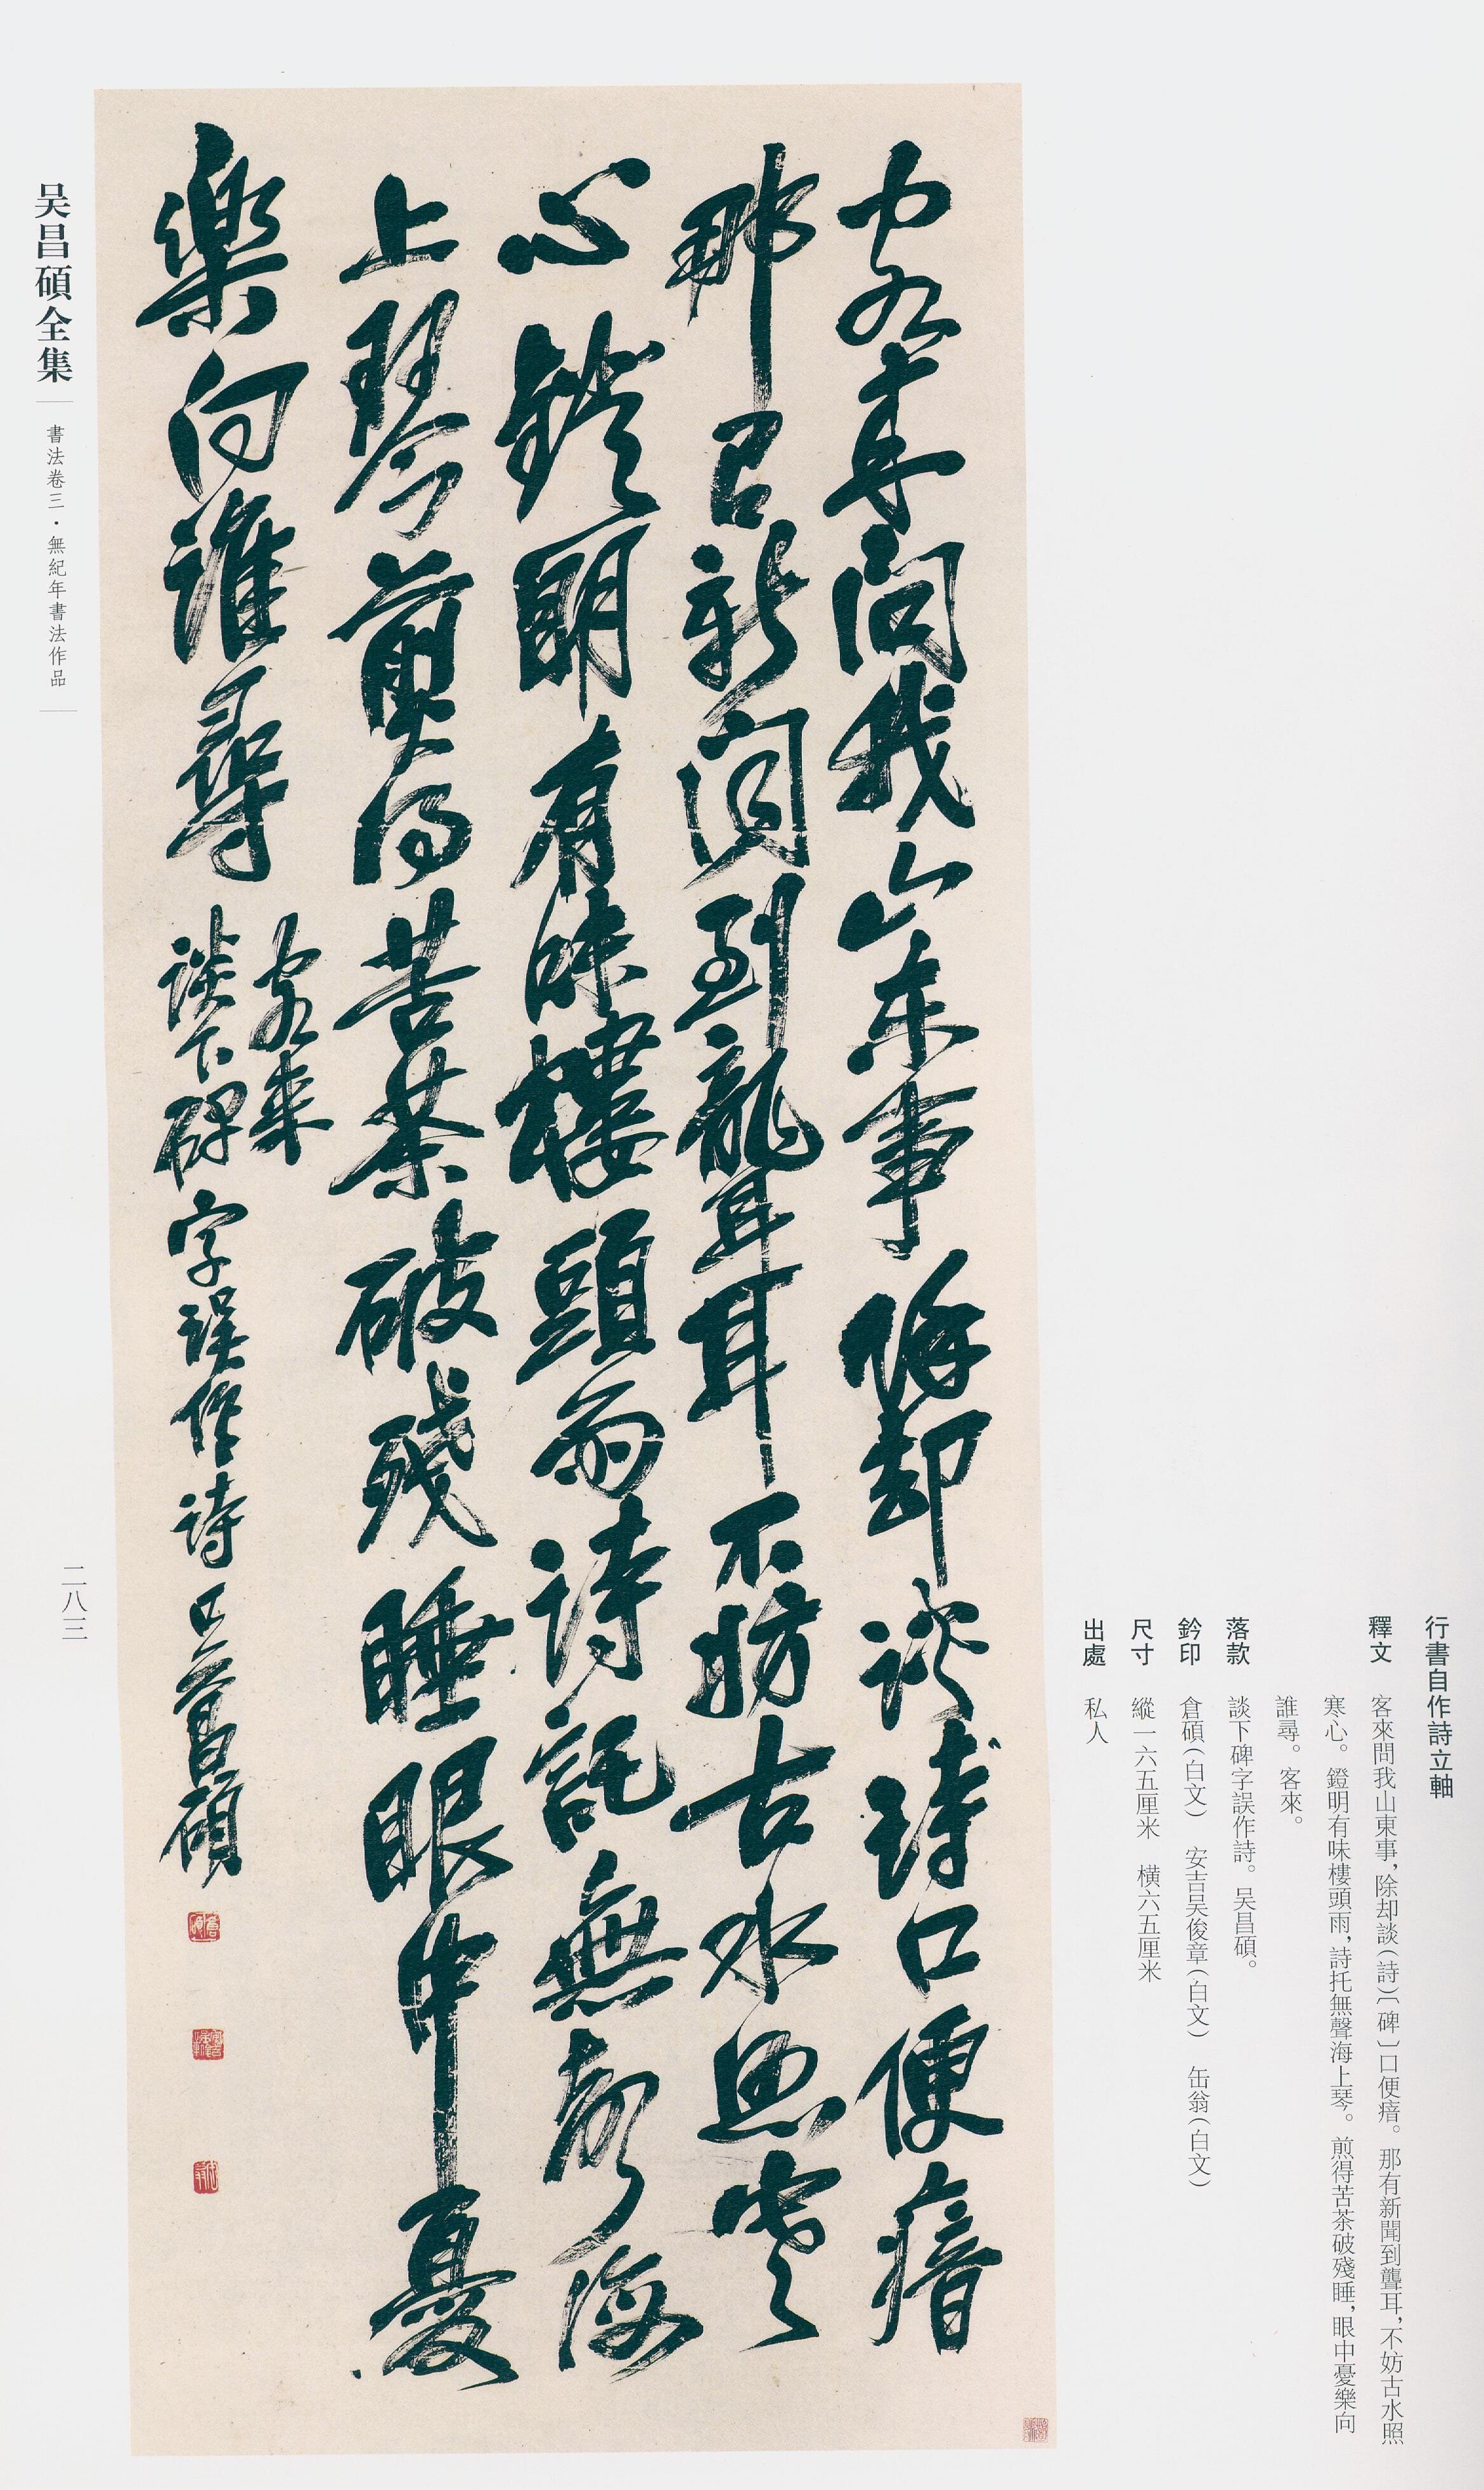 行書自作詩立軸
釋文 客來問我山東事，除却談（詩）〔碑〕口便瘖。那有新聞到聾耳，不妨古水照
寒心。鐙明有味樓頭雨，詩托無聲海上琴。煎得苦茶破殘睡，眼中憂樂向
誰尋。客來。
落款 談下碑字誤作詩。吴昌碩。
鈐印 倉碩（白文） 安吉吴俊章（白文） 缶翁（白文）
尺寸 縱一六五厘米 橫六五厘米
出處 私人
客來問我山東事除却談詩口便瘖
那有新聞到聾耳不妨古水照寒
心鐙朙有味樓頭雨詩託無聲海
上琴煎得苦茶破殘睡眼中憂
樂向誰尋
客來
談下碑字誤作詩 吴昌碩
吴昌碩全集
書法卷三·無紀年書法作品
二八三